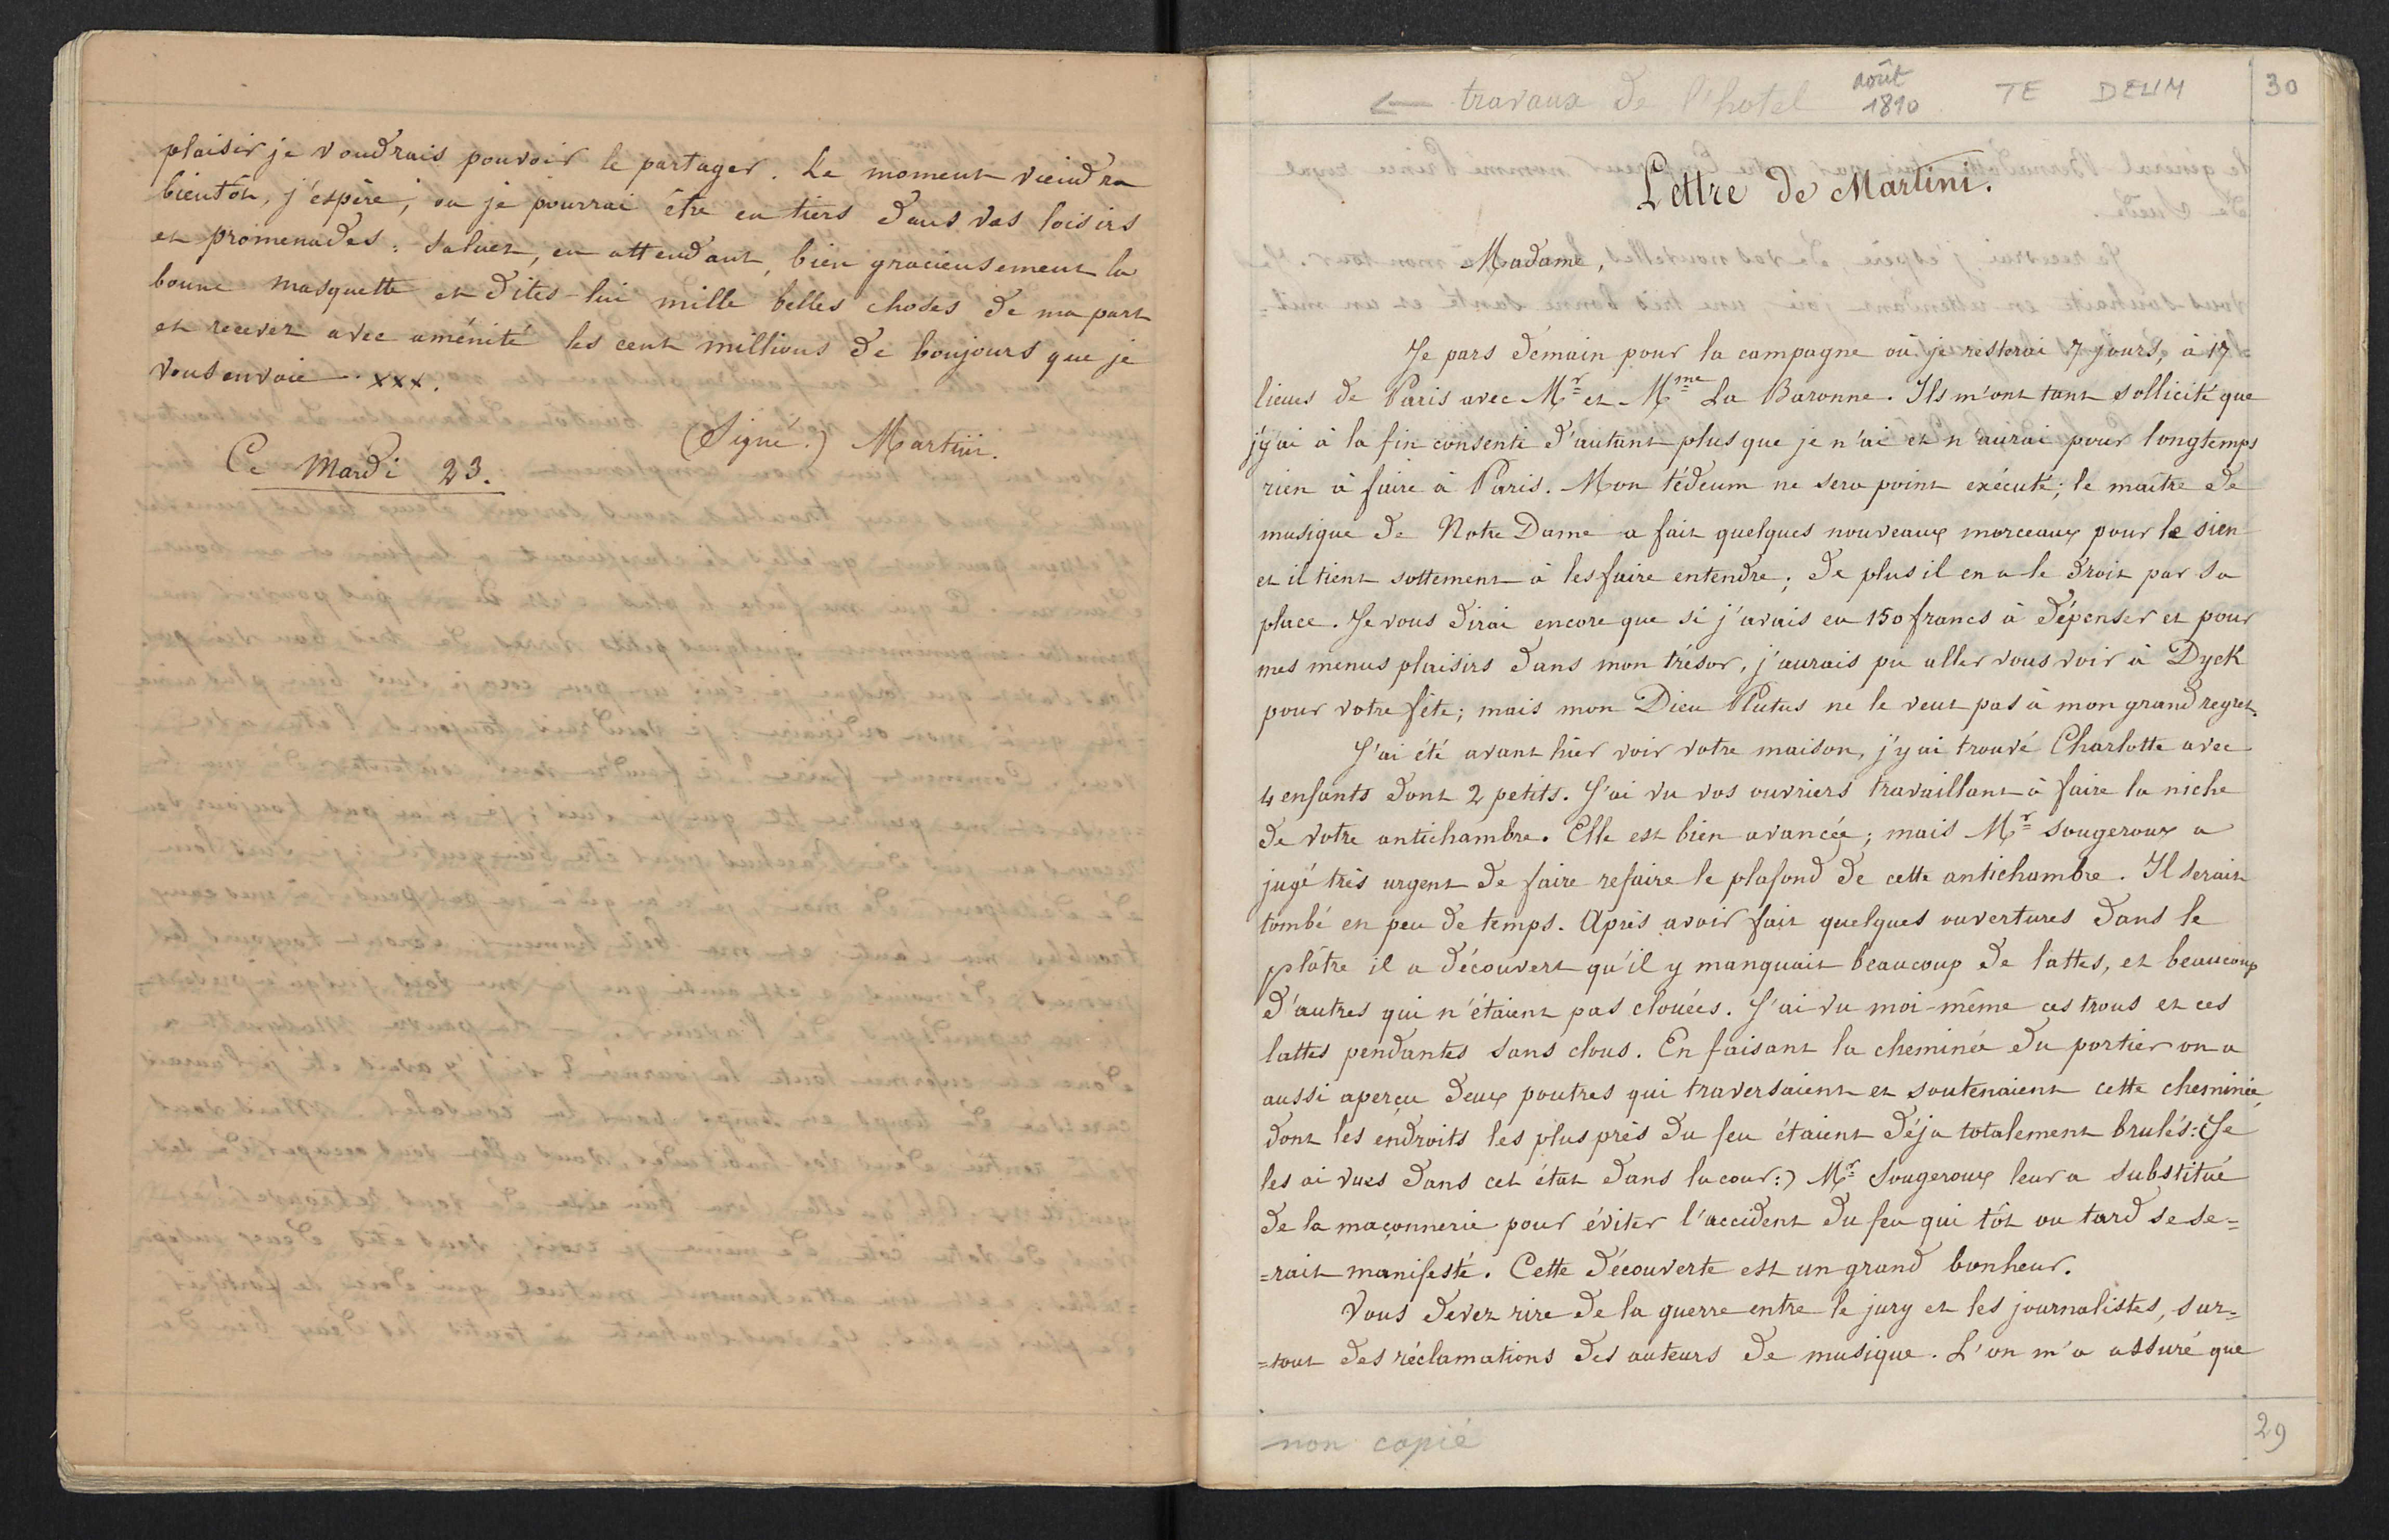 plaisir je voudrais pouvoir le partager. Le moment viendra
bientôt, j'éspère, ou je pourrai être en tiers dans vos loisirs
et promenades: saluez, en attendant, bien gracieusement la
bonne masquette et dites-lui mille belles choses de ma part
et recevez avec aménité les cent millions de bonjours que je
vous envoie xxx.
(Signé.) Martini.
Ce Mardi 23.
← travaux de l'hotel août 1810 TE DEUM 30
Lettre de Martini.
Madame,
Je pars démain pour la campagne où je resterai 7 jours, à 17
lieues de Paris avec Mr et Mme La Baronne. Ils m'ont tant sollicité que
j'y ai à la fin consenti d'autant plus que je n'ai et n'aurai pour longtemps
rien à faire à Paris. Mon tédeum ne sera point exécuté; le maître de
musique de Notre Dame a fait quelques nouveaux morceaux pour le sien
et il tient sottement à les faire entendre; de plus il en a le droit par sa
place. Je vous dirai encore que si j'avais eu 150 francs à dépenser et pour
mes menus plaisirs dans mon trésor, j'aurais pu aller vous voir à Dyck
pour votre fête; mais mon Dieu Plutus ne le veut pas à mon grand regret.
J'ai été avant hier voir votre maison, j'y ai trouvé Charlotte avec
4 enfants dont 2 petits. J'ai vu vos ouvriers travaillant à faire la niche
de votre antichambre. Elle est bien avancée; mais Mr Sougeroux a
jugé très urgent de faire refaire le plafond de cette antichambre. Il serait
tombé en peu de temps. Après avoir fait quelques ouvertures dans le
plâtre il a découvert qu'il y manquait beaucoup de lattes, et beaucoup
d'autres qui n'étaient pas clouées. J'ai vu moi-même ces trous et ces
lattes pendantes sans clous. En faisant la cheminée du portier on a
aussi aperçu deux poutres qui traversaient et soutenaient cette cheminée,
dont les endroits les plus près du feu étaient déja totalement brulés: (Je
les ai vues dans cet état dans la cour:) Mr Sougeroux leur a substitué
de la maçonnerie pour éviter l'accident du feu qui tôt ou tard se se=
=rait manifesté. Cette découverte est un grand bonheur.
Vous devez rire de la guerre entre le jury et les journalistes, sur=
=tout des réclamations des auteurs de musique. L'on m'a assuré que
non copié
29